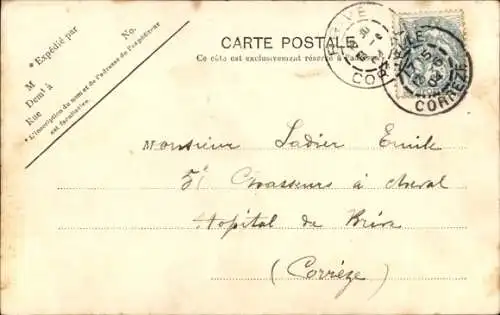 * Expédié par
No.
M
Demt à
Rue
* L'inscription du nom et de l'adresse de l'expéditeur
est facultative.
CARTE POSTALE
Ce côté est exclusivement réservé à
CORRÈZE
Monsieur Ladier Emile
5e Chasseurs à cheval
Hôpital de Brive
(Corrèze)